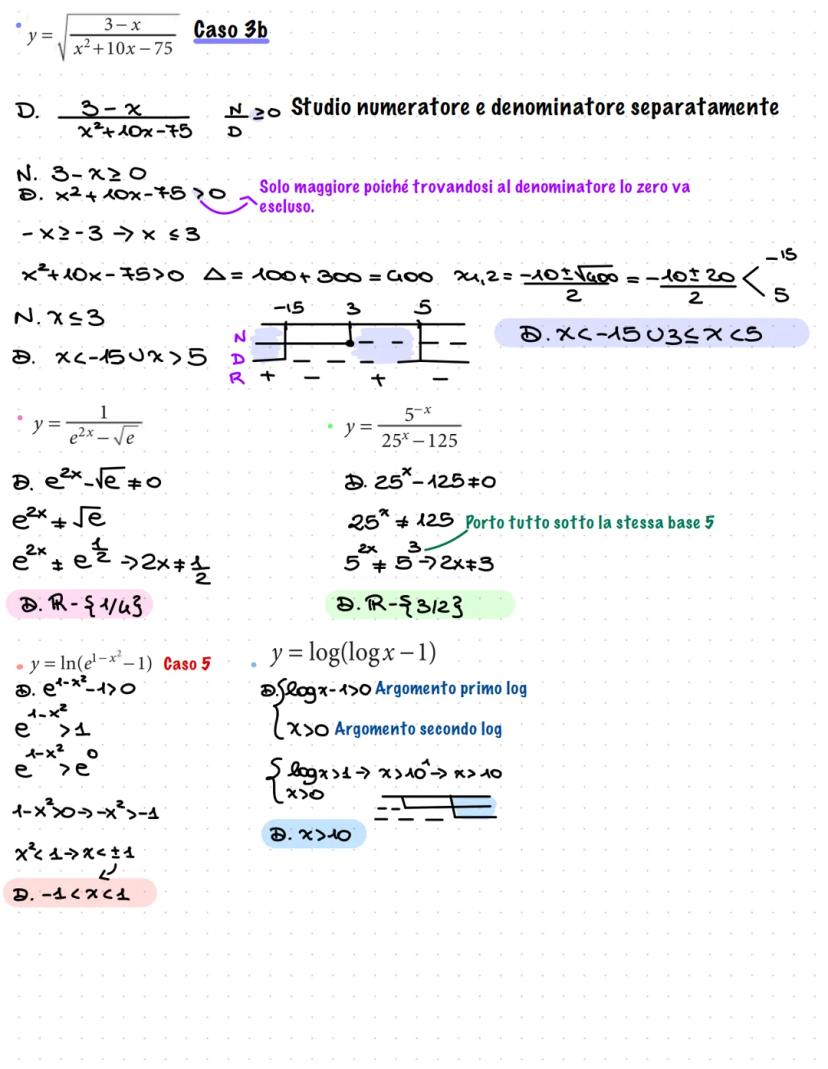 • y = √((3−x)/(x²+10x−75)) Caso 3b
D. (3−x)/(x²+10x−75) N/D ≥0 Studio numeratore e denominatore separatamente
N. 3−x≥0
D. x²+10x−75>0 Solo maggiore poiché trovandosi al denominatore lo zero va
escluso.
−x≥−3 → x ≤3
x²+10x−75>0 Δ= 100+300=400 x1,2= (−10±√400)/2 = (−10±20)/2 < −15 5
N. x≤3
D. x<−15∪x>5
−15 3 5
N
D
R + − + −
D. x<−15∪3≤x<5
• y = 1/(e²ˣ−√e)
D. e²ˣ−√e≠0
e²ˣ≠√e
e²ˣ ≠ e^(1/2) →2x≠1/2
D. ℝ−{1/4}
• y = 5⁻ˣ/(25ˣ−125)
D. 25ˣ−125≠0
25ˣ ≠ 125 Porto tutto sotto la stessa base 5
5²ˣ ≠ 5³→2x≠3
D. ℝ−{3/2}
• y = ln(e^(1−x²)−1) Caso 5
D. e^(1−x²)−1>0
e^(1−x²) >1
e^(1−x²) >e⁰
1−x²>0→−x²>−1
x²<1→x<±1
D. −1<x<1
• y = log(log x −1)
D.{logx−1>0 Argomento primo log
{x>0 Argomento secondo log
{logx>1→ x>10¹→ x>10
{x>0
D. x>10